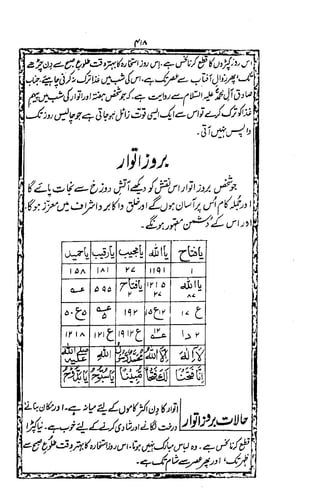 ۴۱۸
اس روز کپڑوں کا قطع کرنا نحس ہے، اس روز استخارہ کا بہتر وقت طلوع صبح سے دن چڑھے
تک، پھر زوال آفتاب سے عصر تک ہے، اس کی شب میں غذا ترک نہ کرنی چاہیئے، جناب
صادق آل محمد علیہ السلام سے روایت ہے، کہ جو شخص ہفتہ اور اتوار کی شب میں پیہم
غذا کو ترک کرے تو اس سے ایک ایسی قوت زائل ہو جاتی ہے جو چالیس روز تک
واپس نہیں آتی۔
بروز اتوار
جو شخص بروز اتوار اس نقش کو دیکھے آتش دوزخ سے نجات پائے گا
اور جملہ کام اس پر آسان ہوں گے اور خلق و اکابر و اشراف میں معزز ہو گا
اور اس کے دشمن مقہور ہونگے۔
یا فتاح یا اللہ یا مجیب یا رقیب یا حمید
۱ ۱۱۹۱ ۲۷ ۱۸۱ ۱۵۸
یا اللہ ۱۲۱۵ یا فتاح ۵۹۵
۸۷ ۲۷ ۲
ع ۱۷ ۱۹۲ ع ۵۰
۲ دا ع ۱۹۱۲ ع ۱۲۱ ۱۲۱۸
لا الہ الا اللہ محمد رسول اللہ صلے اللہ علیہ
انا فتحنا لک فتحا مبینا یا سبوح یا قدوس
حالات بروز اتوار
اتوار کا دن اکثر کاموں کے لئے میانہ ہے۔ اور مکان بنانے
درخت لگانے اور شادی کرنے کے لئے خوب ہے۔ نیا کپڑا
قطع کرنا نحس ہے۔ وہ لباس مبارک نہیں ہوتا، اس روز استخارہ کا بہتر وقت طلوع صبح سے
ظہر تک، اور پھر عصر سے شام تک ہے۔